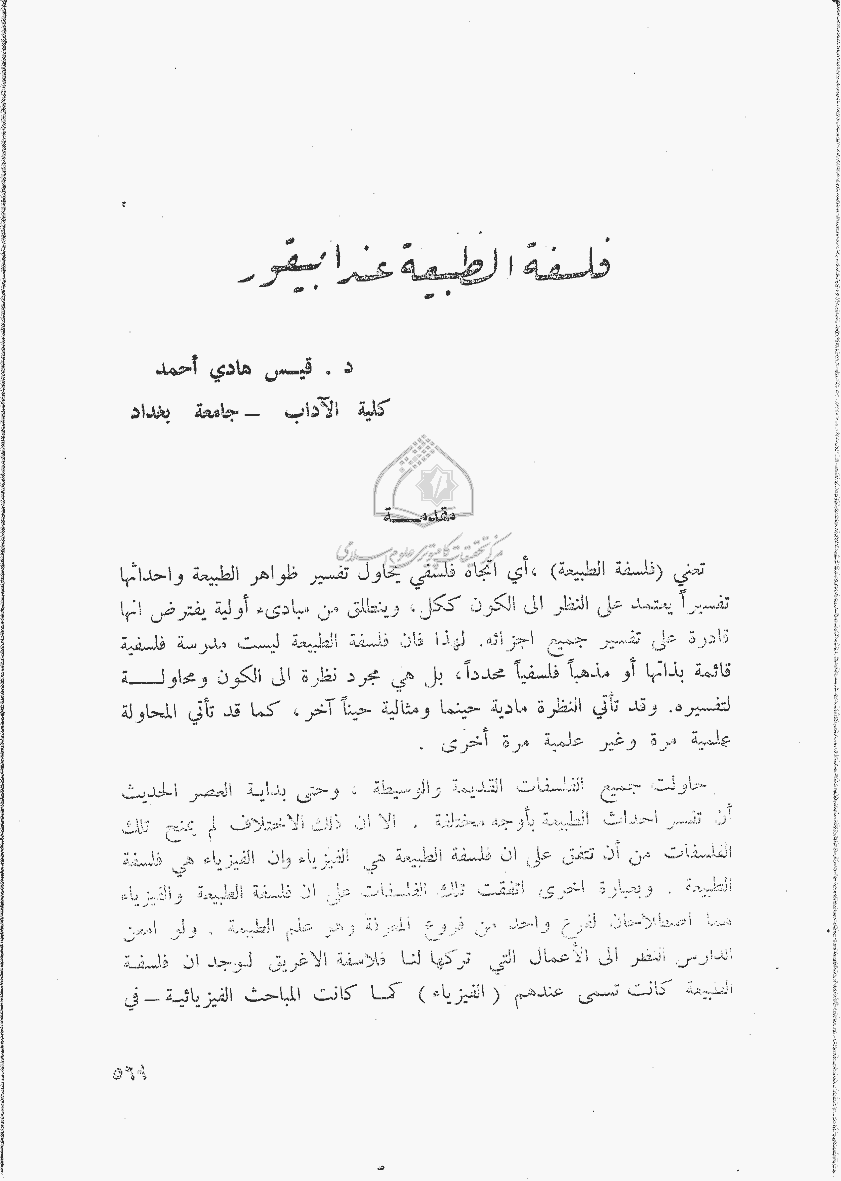 فلسفة الطبيعة عند ابيقور
د . قيـــس هادي أحمد
كلية الآداب – جامعة بغداد
مقدمـــــة
مركز تحقيقات كامپيوتري علوم اسلامي
تعني (فلسفة الطبيعة) ،أي اتجاه فلسفي يحاول تفسير ظواهر الطبيعة واحداثها
تفسيراً يعتمد على النظر الى الكون ككل، وينطلق من مبادىء أولية يفترض انها
قادرة على تفسير جميع اجزائه. لهذا فان فلسفة الطبيعة ليست مدرسة فلسفية
قائمة بذاتها أو مذهباً فلسفياً محدداً، بل هي مجرد نظرة الى الكون ومحاولـــــة
لتفسيره. وقد تأتي النظرة مادية حينما ومثالية حيناً آخر، كما قد تأتي المحاولة
علمية مرة وغير علمية مرة أخرى .
حاولت جميع الفلسفات القديمة والوسيطة ، وحتى بدايـة العصر الحديث
أن تفسر احداث الطبيعة بأوجه مختلفة . الا ان ذلك الاختلاف لم يمنح تلك
الفلسفات من أن تتفق على ان فلسفة الطبيعة هي الفيزياء وان الفيزياء هي فلسفة
الطبيعة . وبعبارة اخرى اتفقت تلك الفلسفات على ان فلسفة الطبيعة والفيزياء
هما اصطلاحان لفرع واحد من فروع المعرفة وهو علم الطبيعة . ولو امعن
الدارس النظر الى الأعمال التي تركها لنـا فلاسفة الاغريق لـوجد ان فلسفـة
الطبيعة كانت تسمى عندهم ( الفيزياء ) كمـا كانت المباحث الفيزيائيـة – في
٥٦٩